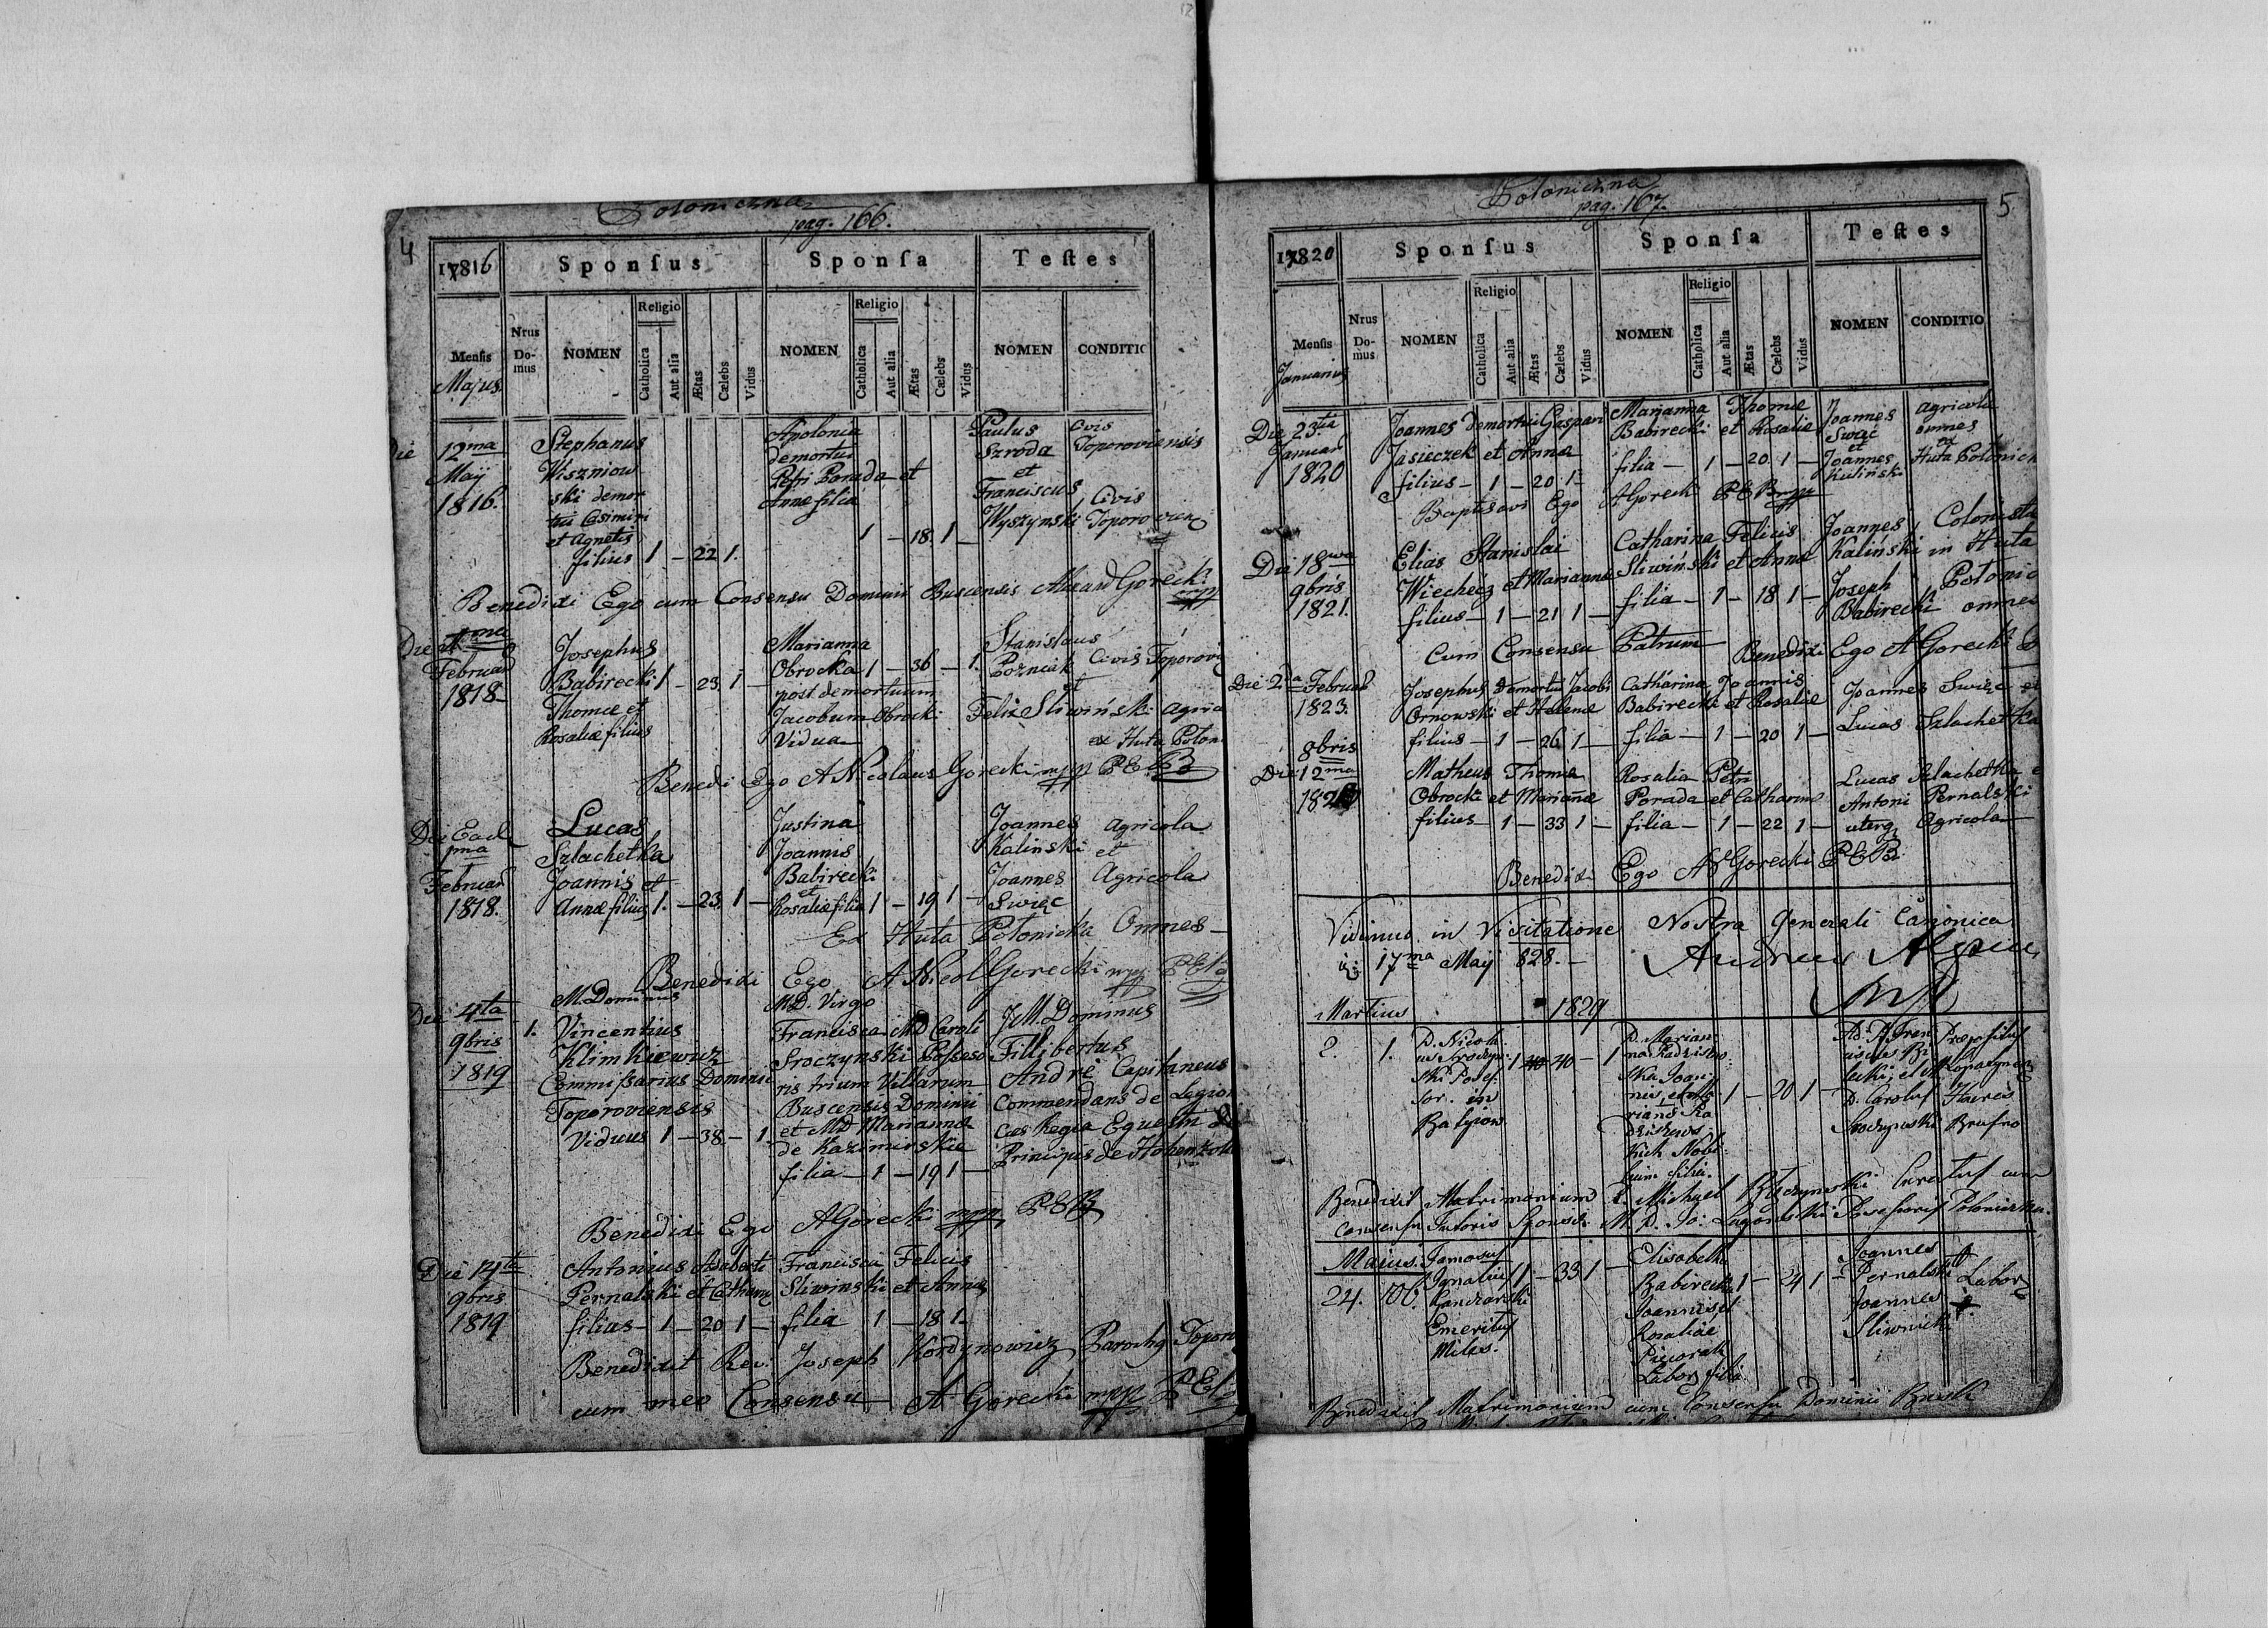 4
Poloniczna
pag. 166.
1816
Sponsus
Sponsa
Testes
Mensis
Majus
Nrus Domus
NOMEN
Religio
Catholica
Aut alia
Ætas
Cælebs
Vidus
NOMEN
Religio
Catholica
Aut alia
Ætas
Cælebs
Vidus
NOMEN
CONDITIO
Die 12ma
Maÿ
1816.
Stephanus
Wiszniow
ski demor
tui Casimiri
et Agnetis
filius 1 — 22 1.
Apolonia
demortui
Petri Porada et
Annæ filia
1 — 18. 1 —
Paulus
Szroda
et
Franciscus
Wyszynski
Civis
Toporoviensis
Civis
Toporovien
Benedixi Ego cum Consensu Dominii Buscensis Gorecki mpp
Die 1ma
Februar
1818
Josephus
Babirecki 1 — 23. 1 —
Thomæ et
Rosaliæ filius
Marianna
Obrocka 1 — 36 — 1.
post demortuum
Jacobum Obrocki
Vidua
Stanislaus
Pozniak Civis Toporov
et
Felix Sliwiński Agric
ex Huta Polon
Benedi Ego A Nicolaus Gorecki mpp
Die Ead
1ma
Februar
1818.
Lucas
Szlachetka
Joannis et
Annæ filius 1. — 23. 1 —
Justina
Joannis
Babirecki
et
Rosaliæ filia 1 — 19 1 —
Joannes
Kalinski
Joannes
Swięc
Agricola
et
Agricola
Ex Huta Polonicka Omnes
Benedixi Ego A Nicol Gorecki mpp
Die 4ta
9bris
1819
1.
M. Dominus
Vincentius
Klimkiewicz
Commissarius Dominii
Toporoviensis
Viduus 1 — 38 — 1
MD. Virgo
Francisca MD Caroli
Sroczynski Possesso
ris trium Villarum
Buscensis Dominii
et MD Marianna
de Kazimirskie
filia — 1 — 19 1 —
JM. Dominus
Fillibertus
André Capitaneus
Commendans de Legion
Cæs Regia Equestri
Principis de Hohenzoll
Benedixi Ego A Gorecki mpp
Die 14ta
9bris
1819
Antonius Adalberti
Pernalski et Catharinæ
filius — 1 — 20 1 —
Francisca Felicis
Sliwinski et Anna
filia 1 — 18 1.
Benedixit Rev: Joseph Kordynowicz Parochg Toporo
cum meo Consensu — A Gorecki mpp
5
Poloniczna
pag. 167.
1820
Sponsus
Sponsa
Testes
Mensis
Januarius
Nrus Domus
NOMEN
Religio
Catholica
Aut alia
Ætas
Cælebs
Vidus
NOMEN
Religio
Catholica
Aut alia
Ætas
Cælebs
Vidus
NOMEN
CONDITIO
Die 23tia
Januar
1820
Joannes demortui Gaspari
Jasieczek et Anna
filius — 1 — 20 1 —
Marianna Thomæ
Babirecki et Rosaliæ
filia — 1 — 20. 1 —
Joannes
Swięc
et
Joannes
Kalinski
Agricola
omnes
ex
Huta Polonick
Baptisavi Ego A Gorecki
Die 18va
9bris
1821.
Elias Stanislai
Wiecheć et Mariannæ
filius — 1 — 21 1 —
Catharina Felicis
Sliwiński et Anna
filia — 1 — 18 1 —
Joannes
Kaliński
Joseph
Babirecki
Colonista
in Huta
Polonic
omnes
Cum Consensu Patrum Benedixi Ego A Gorecki
Die 2da Februar
1823.
Josephus demortui Jacobi
Ornowski et Hellenæ
filius — 1 — 26 1 —
Catharina Joannis
Babirecki et Rosaliæ
filia — 1 — 20 1 —
Joannes Swięc et
Lucas Szlachetka
8bris
Die 12ma
Matheus Thomæ
Obrocki et Mariannæ
filius — 1 — 33 1 —
Rosalia Petri
Porada et Catharinæ
filia — 1 — 22 1 —
Lucas Szlachetka
Antoni Pernalski
uterq Agricola
Benedixi Ego A Gorecki
Vidimus in Visitatione Nostra Generali Canonica
17ma Maÿ 828. —
Martius 1829
2.
1.
D. Nicola
us Sroczyń
ski Posse
sor. in
1 — 40 — 1
D. Marian
na Radziszew
ska Joan
nis, et Ma
riannæ Ra
dziszews
kich Nobi
lium filia.
1 — 20 1 —
D. Carolus
Sroczynski
Præpositus
Hæres
Benedixit Matrimonium Michael Curatus cum
consensu Tutoris Sponsæ M. D. Jo: Possessoris Poloniczna.
Maius.
24.
106.
Famosus
Ignatius
Emeritus
Miles.
1 — 33 1 —
Elisabetha
Babirecka 1 — 24 1 —
Joannis et
Rosaliæ
Piecorak
Labor filia
Joannes
Pernalski
Joannes
Sliwinski
Labor
Benedixit Matrimonium cum Consensu Dominii Busk